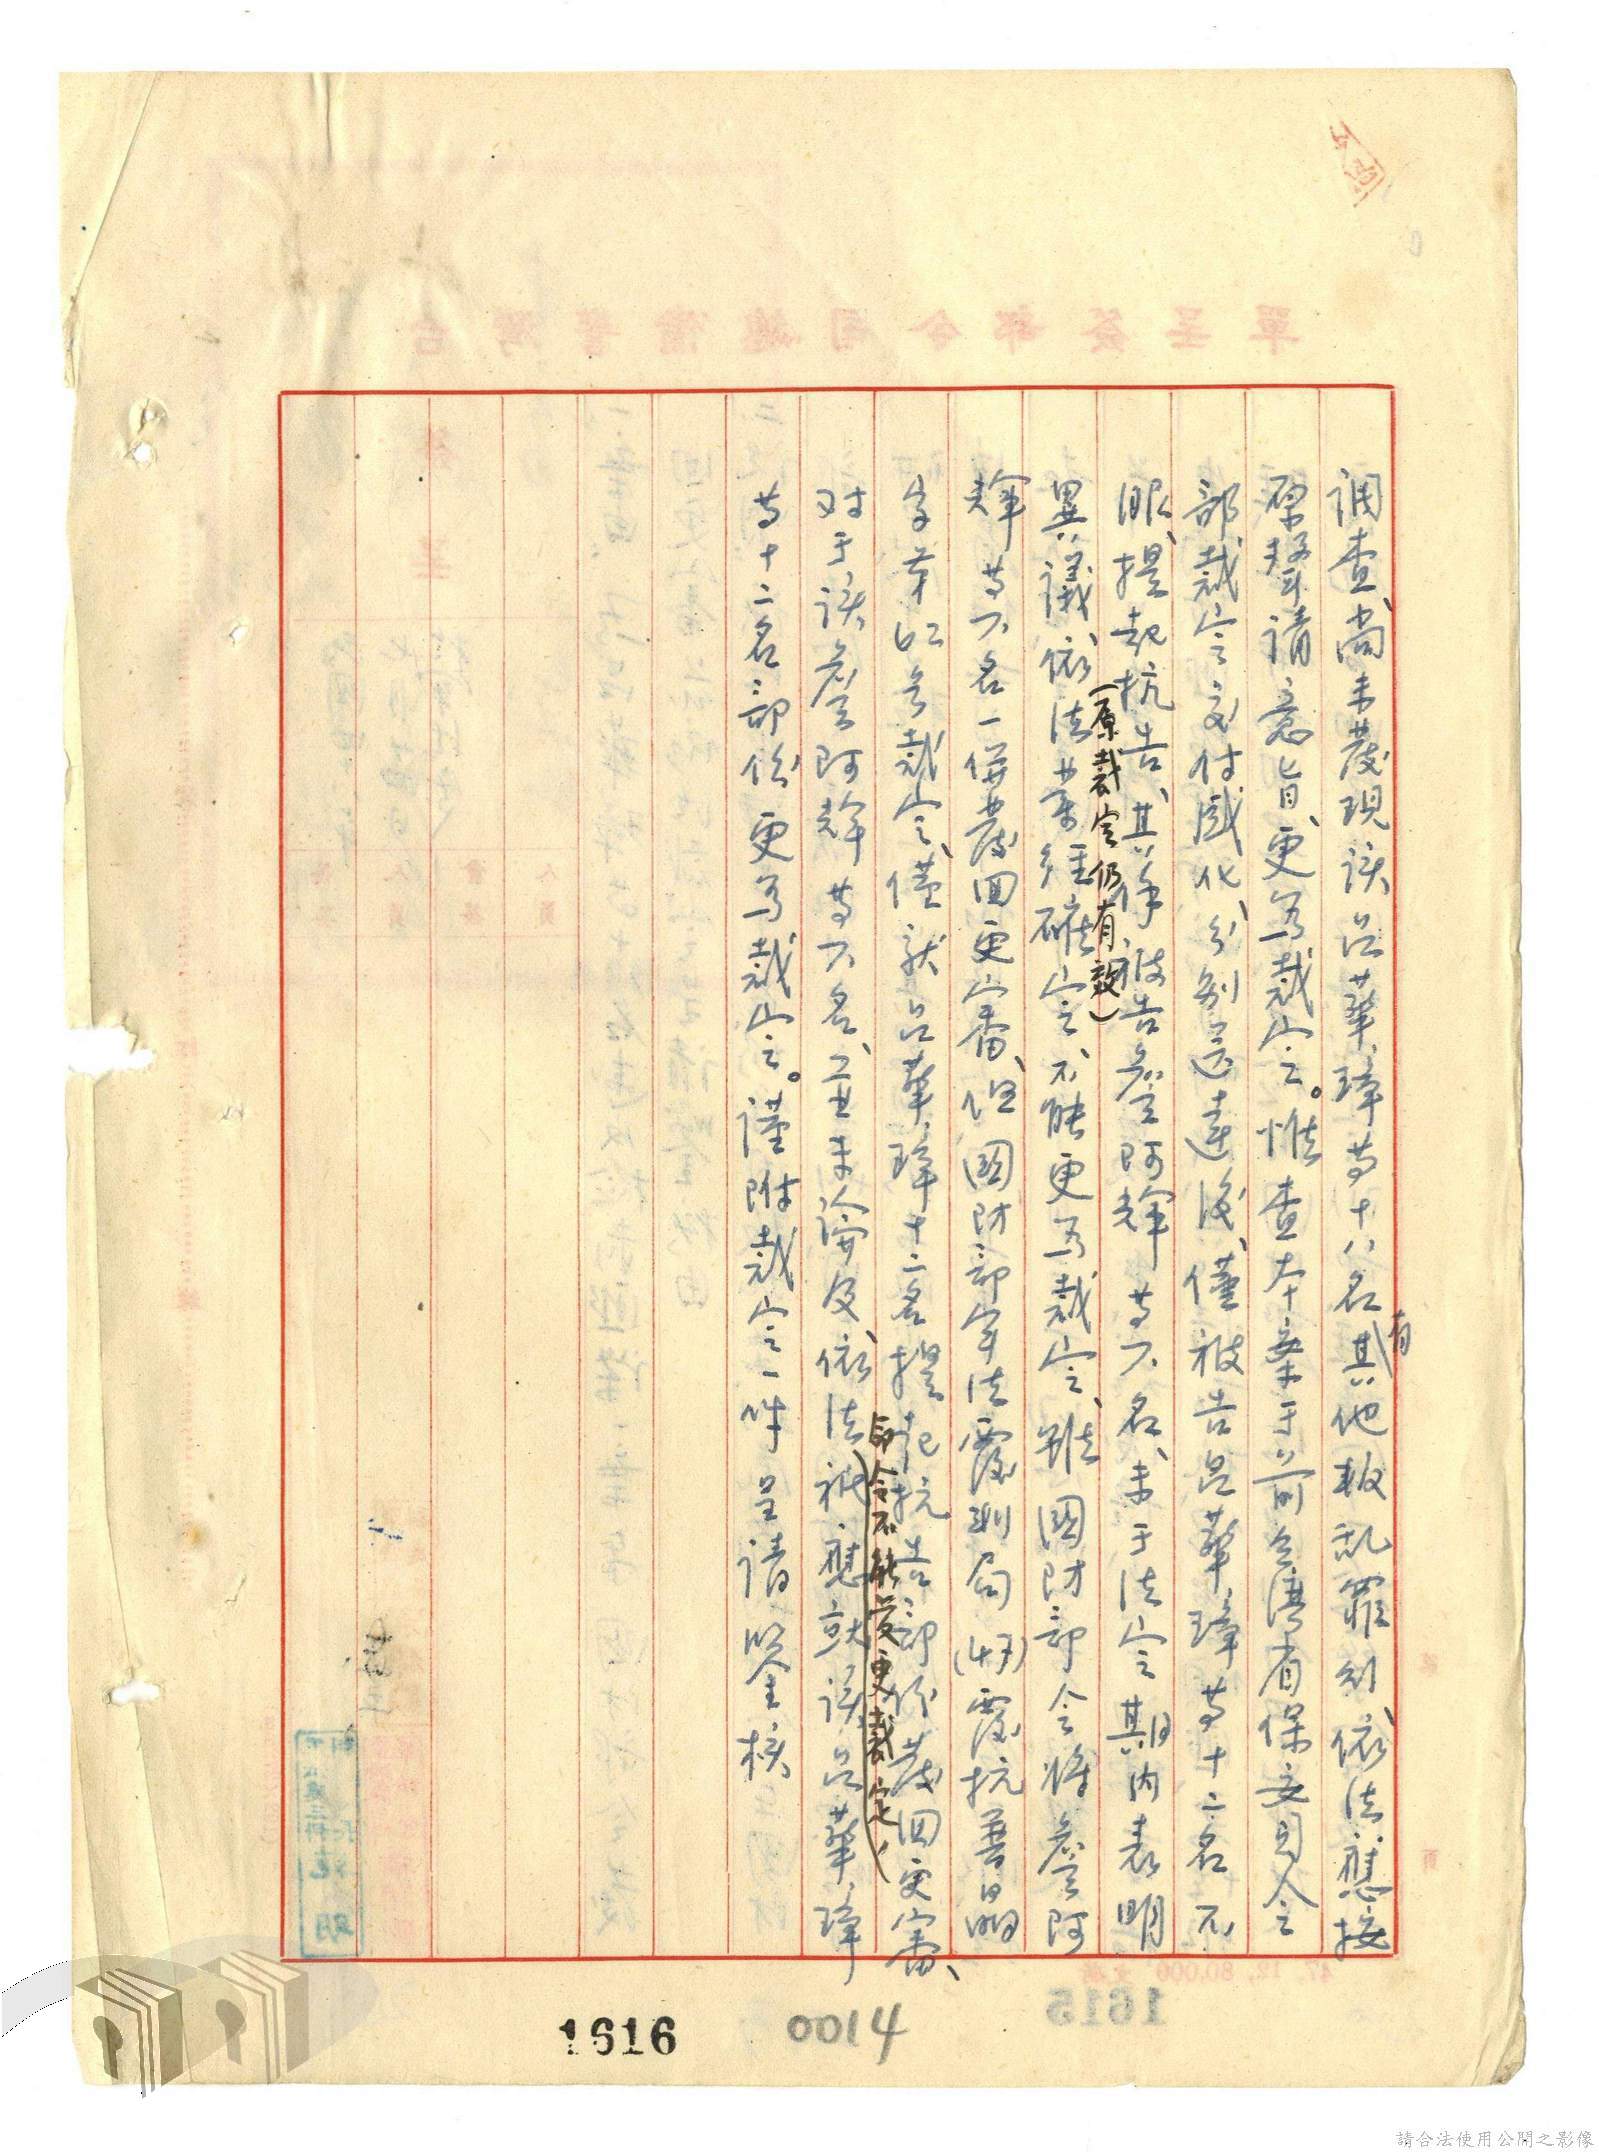 調查、尚未發現該呂華璋等十八名有其他叛亂罪刑、依法應按
原聲請意旨、更為裁定。惟查本案于前台灣省保安司令
部裁定交付感化、分別送達後、僅被告呂華璋等十二名不
服、提起抗告、其餘被告詹阿輝等六名、未于法定期內表明
(原裁定仍有效)
異議依法業經確定不能更為裁定、雖國防部令將詹阿
輝等六名一併發回更審、但國防部軍法覆判局(47)覆抗普晶
字第 號裁定、僅就呂華璋十二名提起抗告部份發回更審、
對于該詹阿輝等六名、並未論及、依法祇應就該呂華璋
部令不能受更裁定
等十二名部份更為裁定。謹附裁定一件呈請鑒核
單呈簽部令司總備警灣台
47. 12. 80,000
1615
1616
0014
請合法使用公開之影像